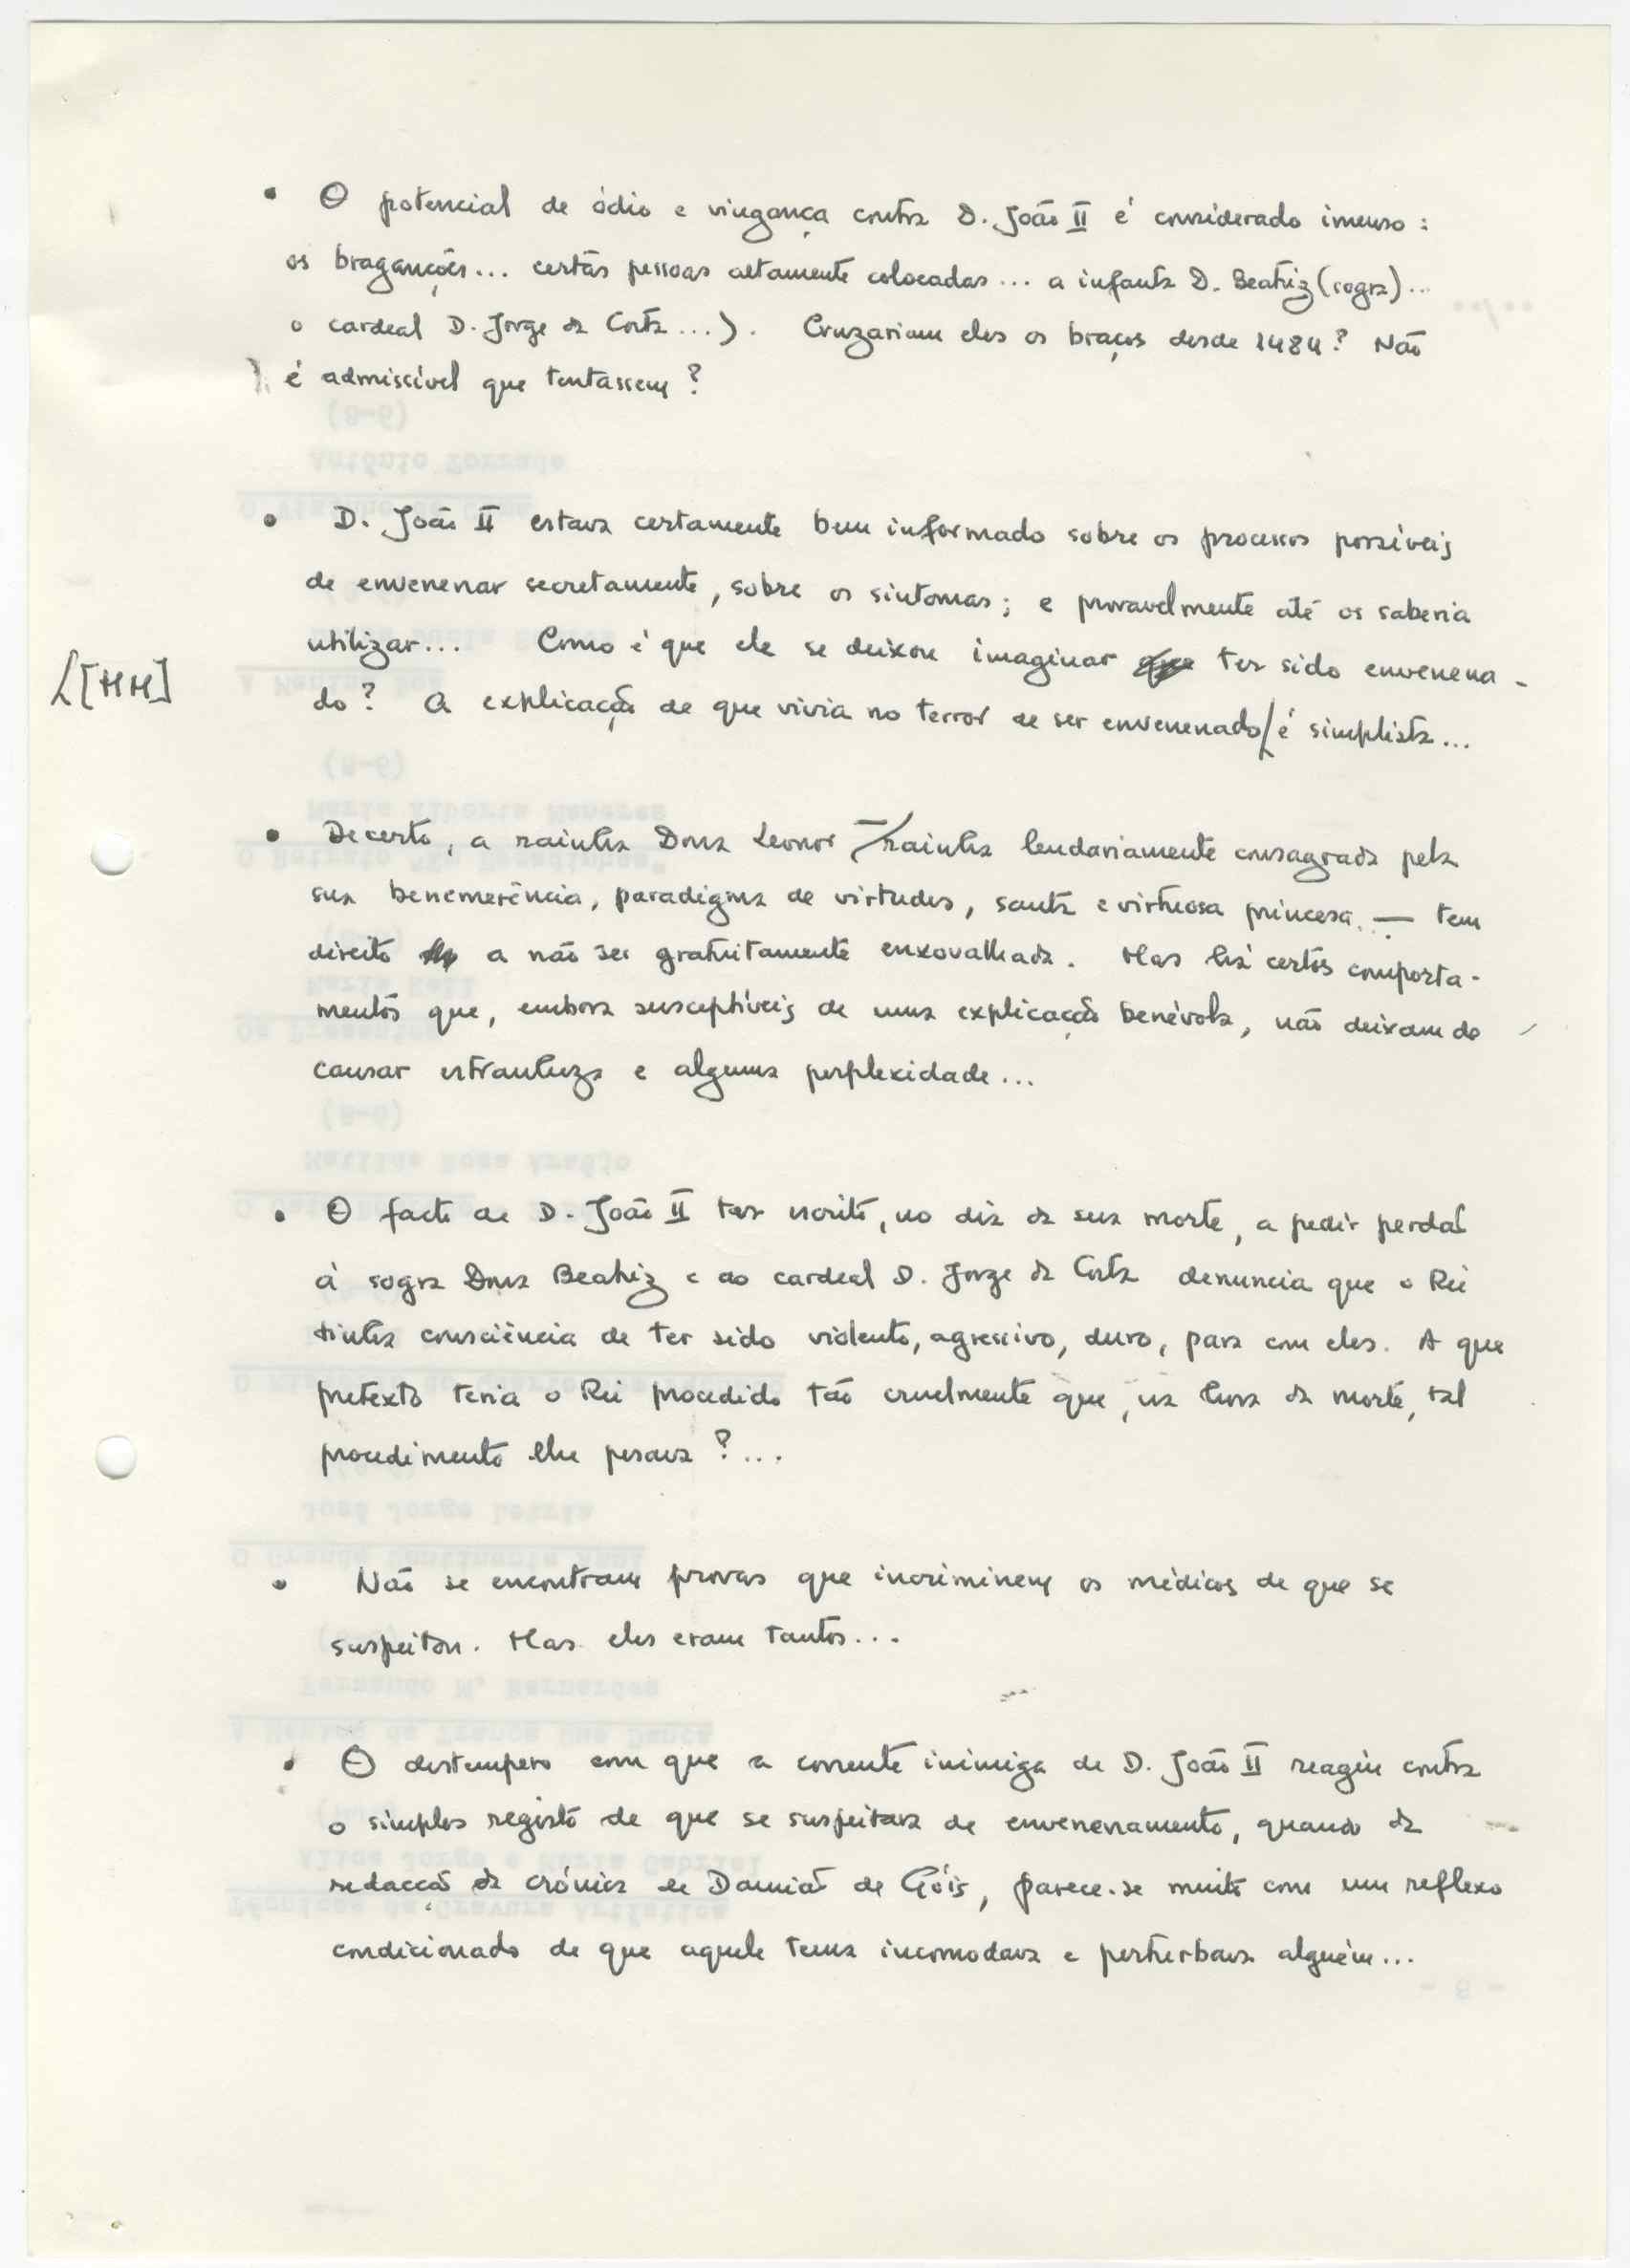 • O potencial de ódio e vingança contra D. João II é considerado imenso:
os braganções... certas pessoas altamente colocadas... a infanta D. Beatriz (sogra)...
o cardeal D. Jorge da Costa...). Cruzariam eles os braços desde 1484? Não
é admissível que tentassem?
• D. João II estava certamente bem informado sobre os processos possíveis
de envenenar secretamente, sobre os sintomas; e provavelmente até os saberia
utilizar... Como é que ele se deixou imaginar ter sido envenena-
[HM]
do? A explicação de que vivia no terror de ser envenenado é simplista...
• Decerto, a rainha Dona Leonor — rainha lendariamente consagrada pela
sua benemerência, paradigma de virtudes, santa e virtuosa princesa — tem
direito a não ser gratuitamente enxovalhada. Mas há certos comporta-
mentos que, embora susceptíveis de uma explicação benévola, não deixam de
causar estranheza e alguma perplexidade...
• O facto de D. João II ter escrito, no dia da sua morte, a pedir perdão
à sogra Dona Beatriz e ao cardeal D. Jorge da Costa denuncia que o Rei
tinha consciência de ter sido violento, agressivo, duro, para com eles. A que
pretexto teria o Rei procedido tão cruelmente que, na hora da morte, tal
procedimento lhe pesava?...
• Não se encontram provas que incriminem os médicos de que se
suspeitou. Mas eles eram tantos...
• O destempero com que a corrente inimiga de D. João II reagiu contra
o simples registo de que se suspeitava de envenenamento, quando da
redacção da crónica de Damião de Góis, parece-se muito com um reflexo
condicionado de que aquele tema incomodava e perturbava alguém...